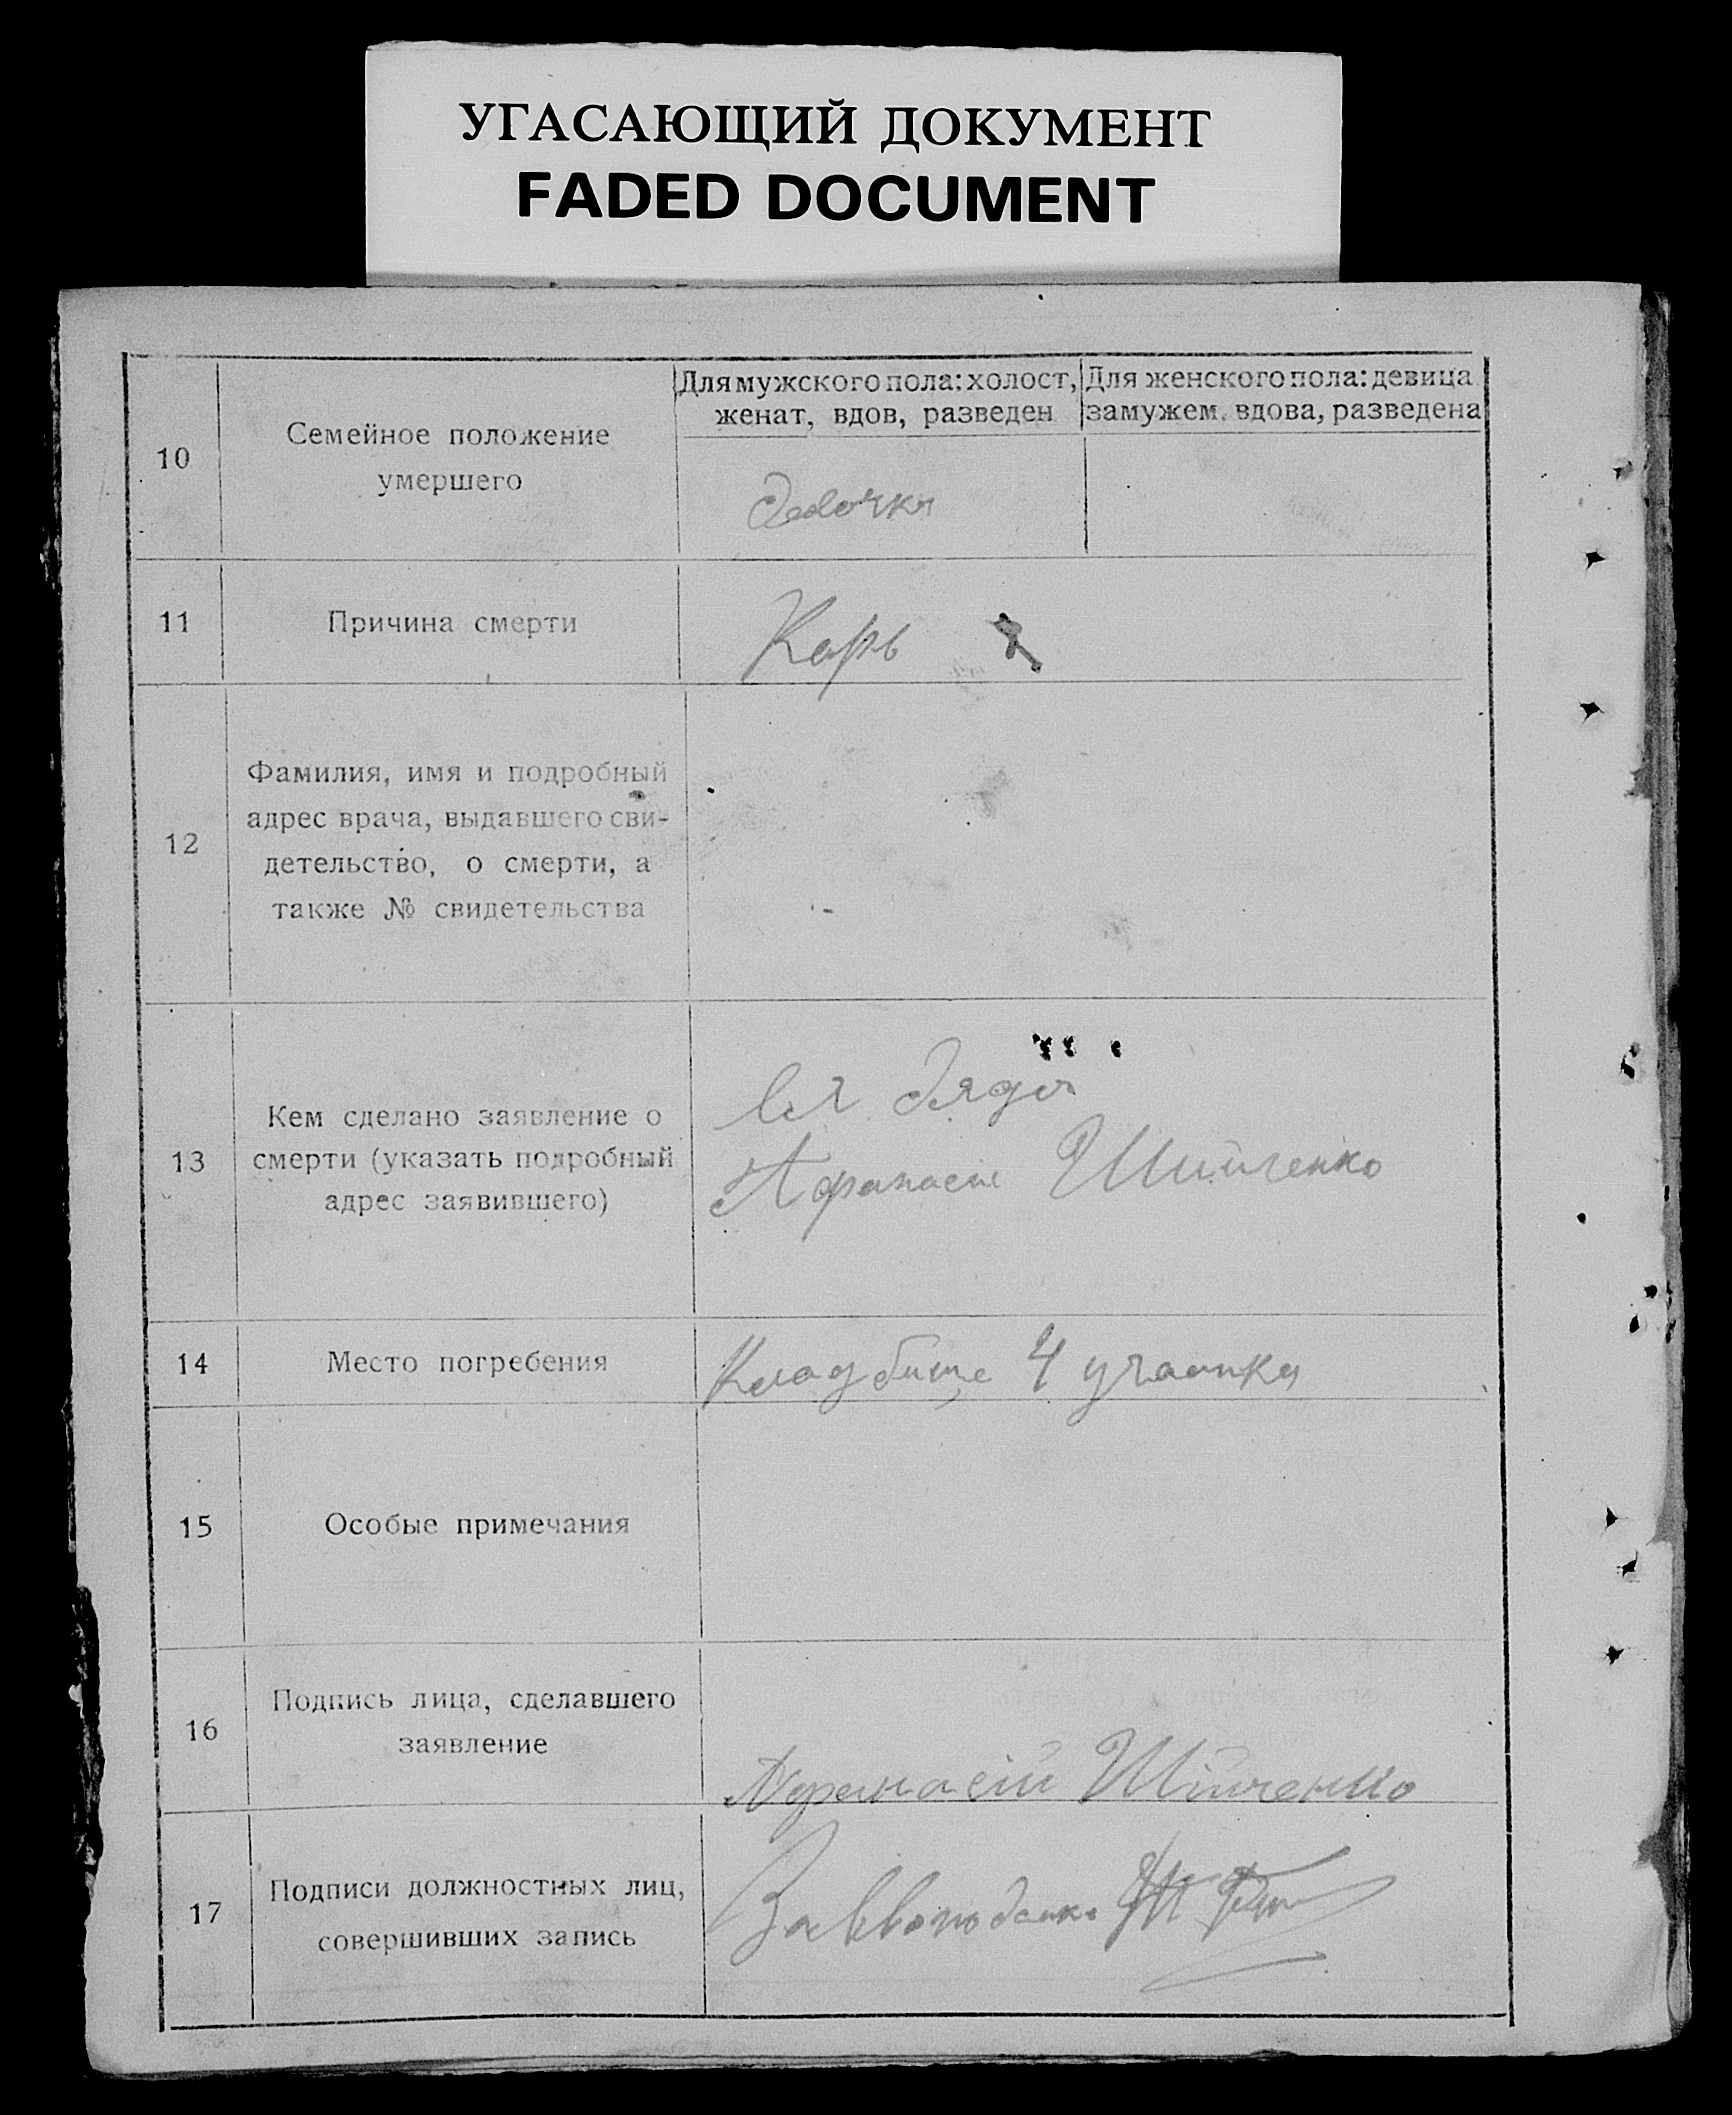 УГАСАЮЩИЙ ДОКУМЕНТ
FADED DOCUMENT
10
Семейное положение
умершего
Для мужского пола: холост,
женат, вдов, разведен
Для женского пола: девица
замужем, вдова, разведена
Девочка
11
Причина смерти
Карь
12
Фамилия, имя и подробный
адрес врача, выдавшего сви-
детельство, о смерти, а
также № свидетельства
13
Кем сделано заявление о
смерти (указать подробный
адрес заявившего)
дядя
Афанасие Шийченко
14
Место погребения
Кладбище 4 участка
15
Особые примечания
16
Подпись лица, сделавшего
заявление
Афанасій Шійченко
17
Подписи должностных лиц,
совершивших запись